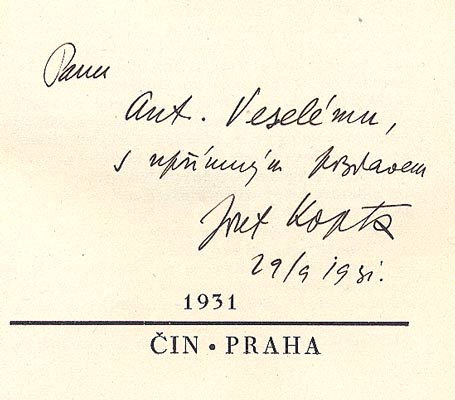 Panu
Ant. Veselému,
s upřímným pozdravem
Josef Kopta
29/9 1931.
1931
ČIN • PRAHA